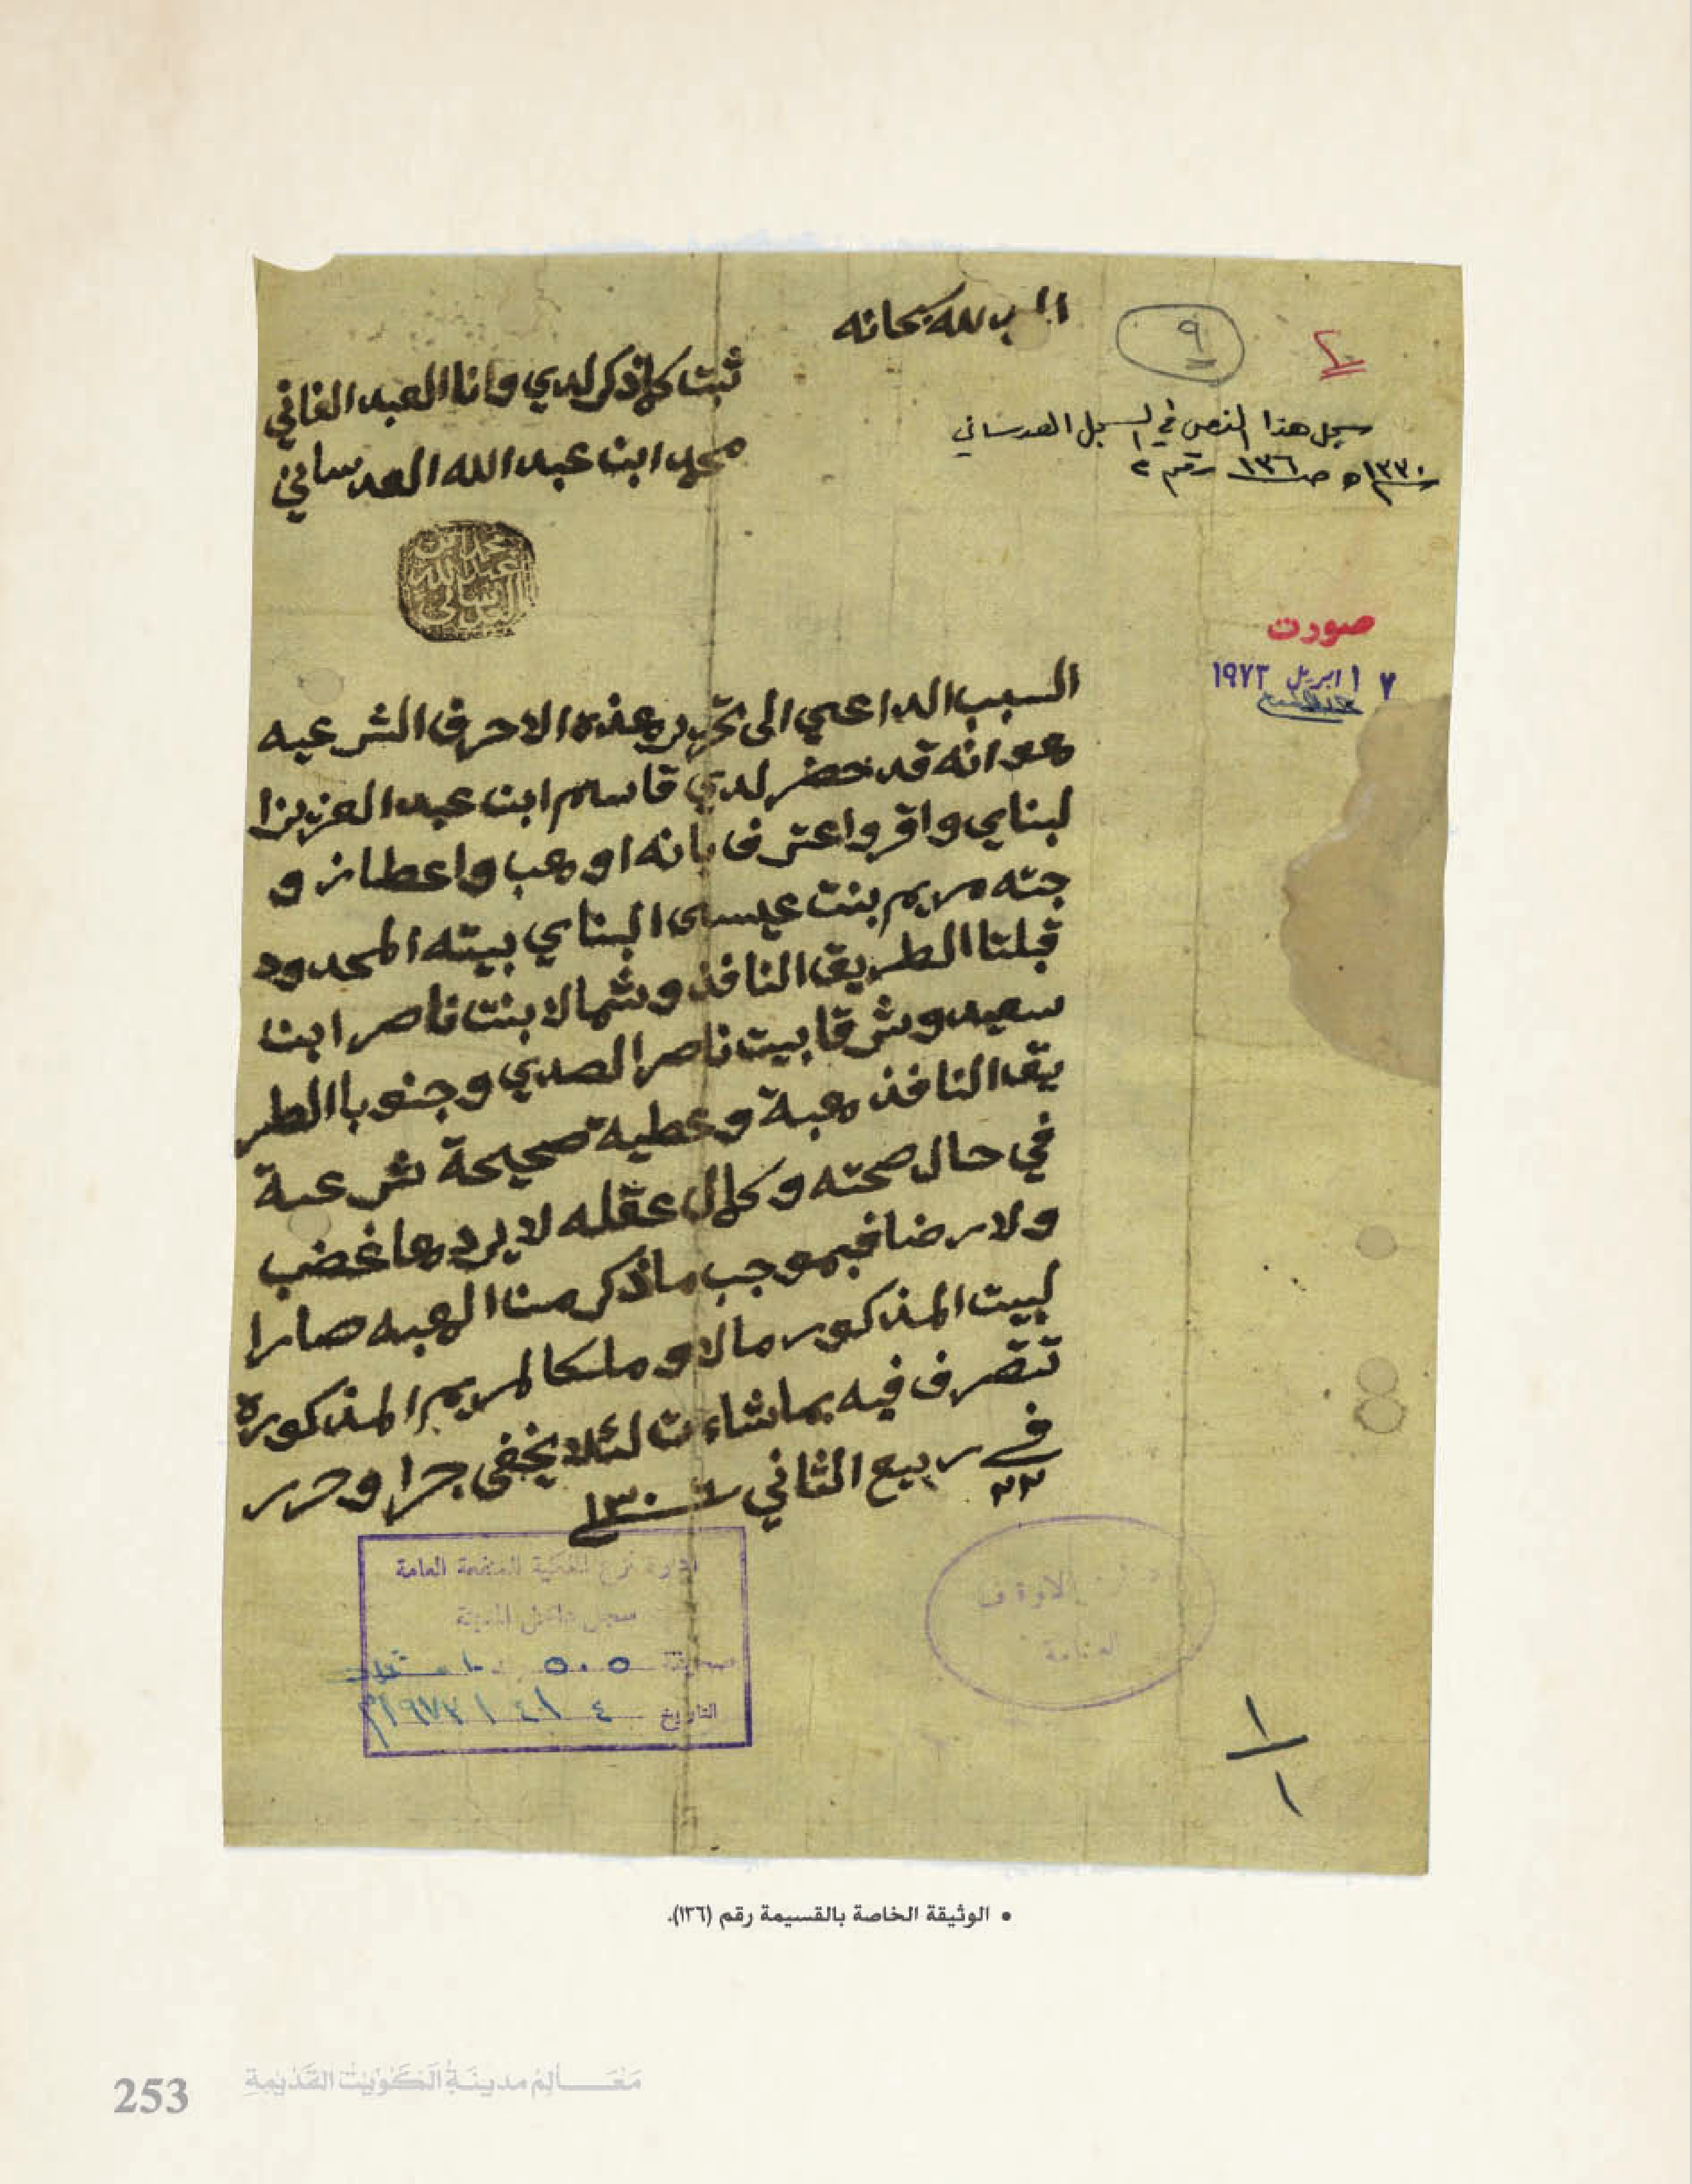 الحمد لله سبحانه
٩
٢
ثبت كلما ذكر لدي وانا العبد الفاني
محمد ابن عبد الله العدساني
سجل هذا النص في السجل العدساني
١٣٣٠ه ص ١٣٦ رقم ٢
محمد بن
عبد الله
العدساني
صورت
١٧ ابريل ١٩٧٣
السبب الداعي الى تحرير هذه الاحرف الشرعيه
هو انه قد حضر لدي قاسم ابن عبد العزيز ا
لبناي واقر واعترف بانه اوهب واعطا ز و
جته مريم بنت عيسى البناي بيته المحدود
قبلتا الطريق النافذ وشمالا بنت ناصر ابن
سعيد وشرقا بيت ناصر الصدي وجنوبا الطر
يق النافذ هبة وعطية صحيحة شرعية
في حال صحته وكمال عقله لا يردها غضب
ولا رضا فبموجب ما ذكر من الهبه صار ا
لبيت المذكور مالا وملكا لمريم المذكورة
تتصرف فيه بما شاءت لئلا يخفى جرا وحرر
في ٢٢ ربيع الثاني
ادارة نزع الملكية للمنفعة العامة
سجل داخل المدينة
صحيفة ٥٠٥
التاريخ ٤ / ٤ / ١٩٧٣م
الاوقاف
العامة
١
١
• الوثيقة الخاصة بالقسيمة رقم (١٣٦).
253 مَعَالِمُ مدينَةِ الكُوَيْت القَدِيمَةِ